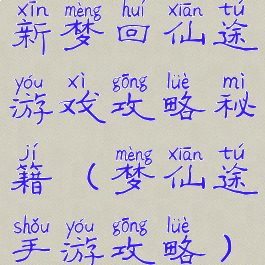 xīn mèng huí xiān tú
新梦回仙途
yóu xì gōng lüè mì
游戏攻略秘
jí mèng xiān tú
籍（梦仙途
shǒu yóu gōng lüè
手游攻略）